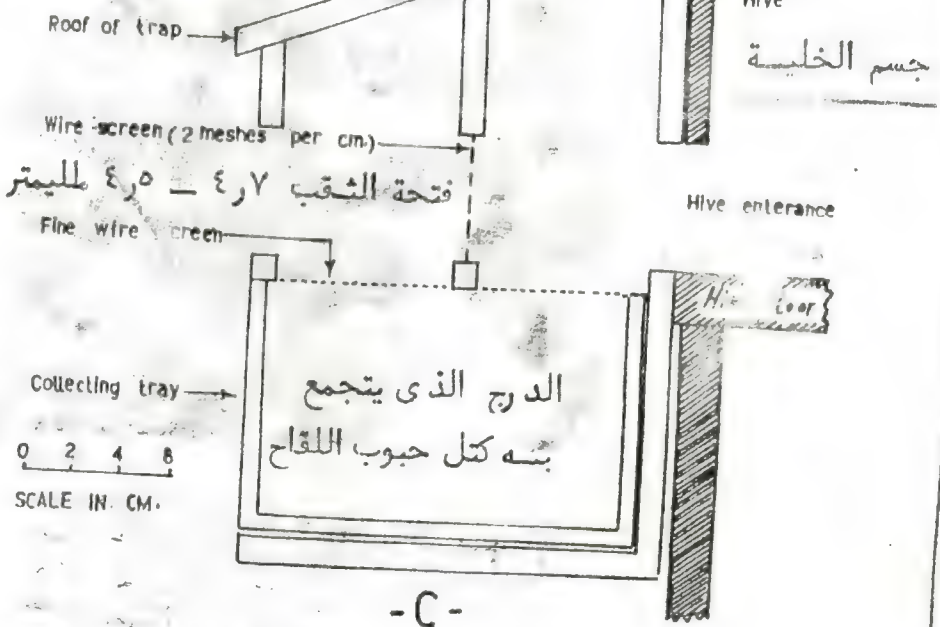 Hive
Roof of trap
جسم الخلية
Wire screen (2 meshes per cm.)
فتحة الثقب ٤٫٧ — ٤٫٥ ملليمتر
Hive enterance
Fine wire screen
Collecting tray
الدرج الذى يتجمع
بنه كتل حبوب اللقاح
0 2 4 6
SCALE IN CM.
-C-